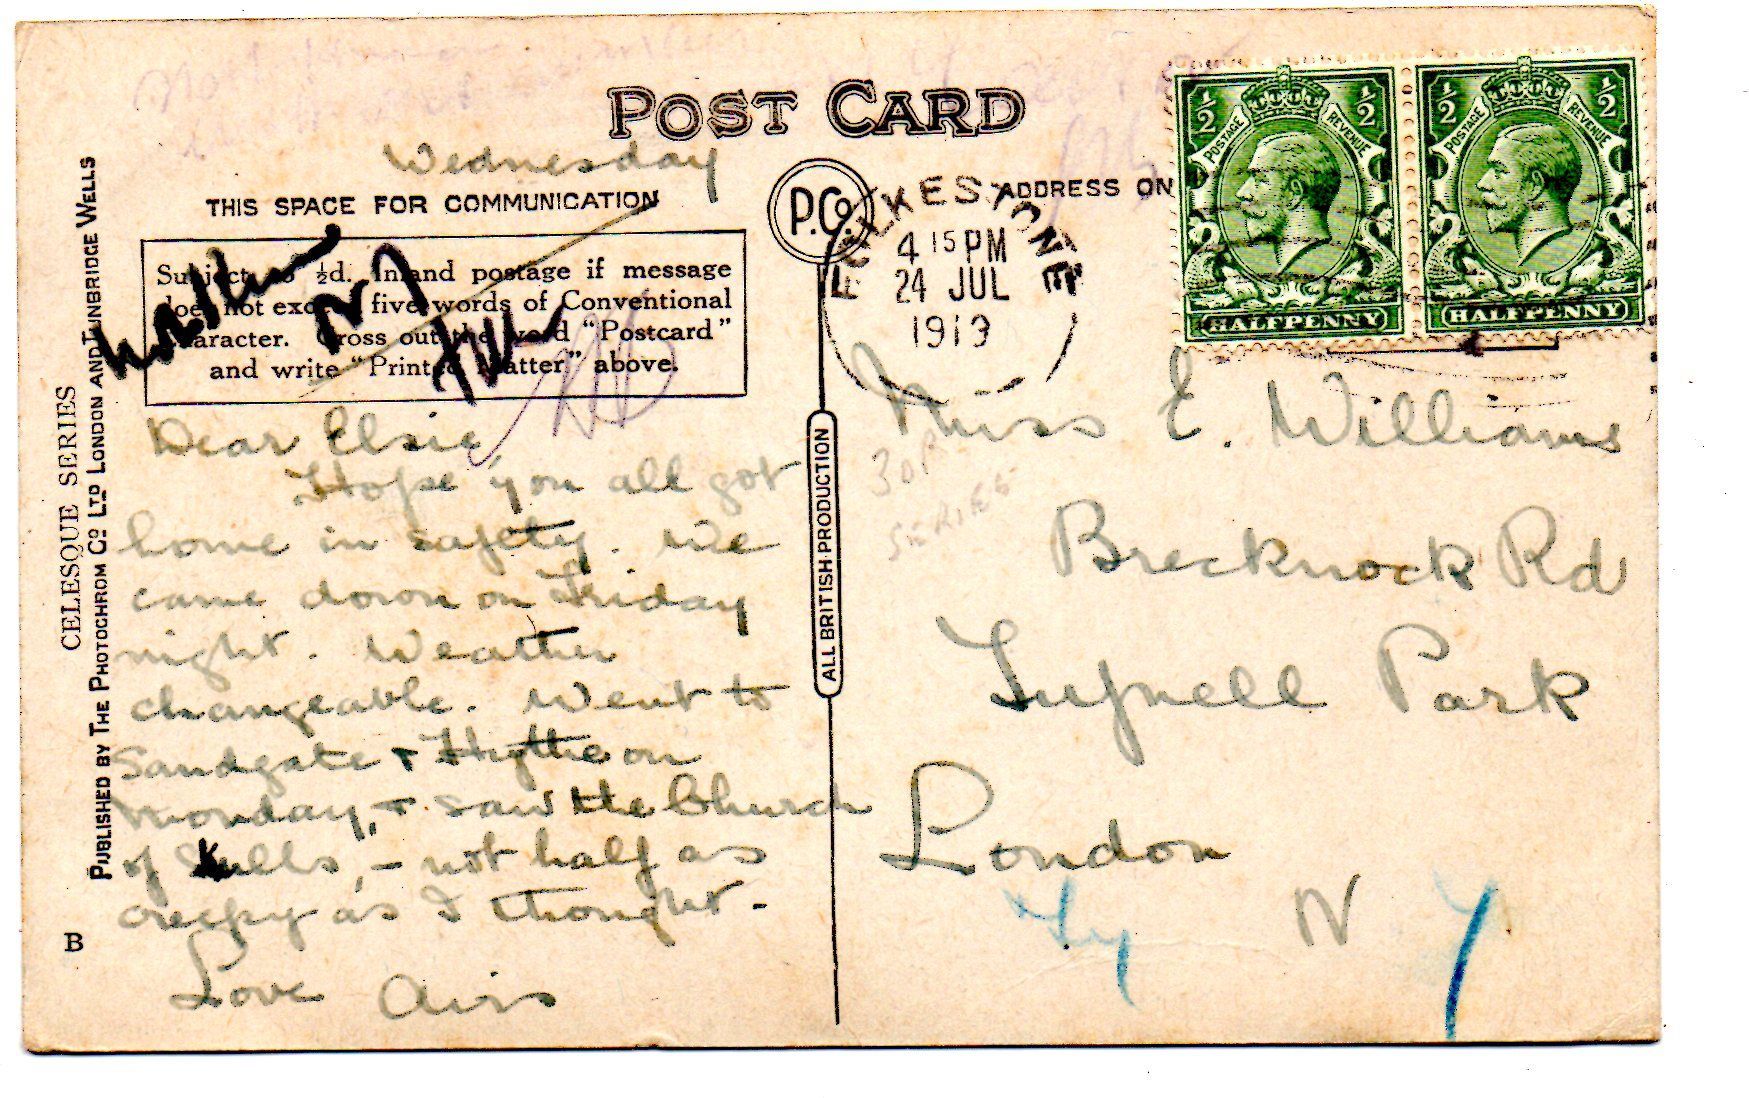 POST CARD
Wednesday
THIS SPACE FOR COMMUNICATION
P.Co.
ADDRESS ON
Subject to ½d. Inland postage if message
does not exceed five words of Conventional
Character. Cross out the word "Postcard"
and write "Printed Matter" above.
N7
Dear Elsie,
Hope you all got
home in safety. We
came down on Friday
night. Weather
changeable. Went to
Sandgate & Hythe on
Monday, & saw the Church
of Skulls, - not half as
creepy as I thought.
Love Airs
CELESQUE SERIES
PUBLISHED BY THE PHOTOCHROM CO LTD LONDON AND TUNBRIDGE WELLS
B
ALL BRITISH PRODUCTION
FOLKESTONE
4 15 PM
24 JUL
1919
½ ½
POSTAGE REVENUE
HALFPENNY
½ ½
POSTAGE REVENUE
HALFPENNY
Miss E. Williams
Brecknock Rd
Tufnell Park
London
N 7
SERIES